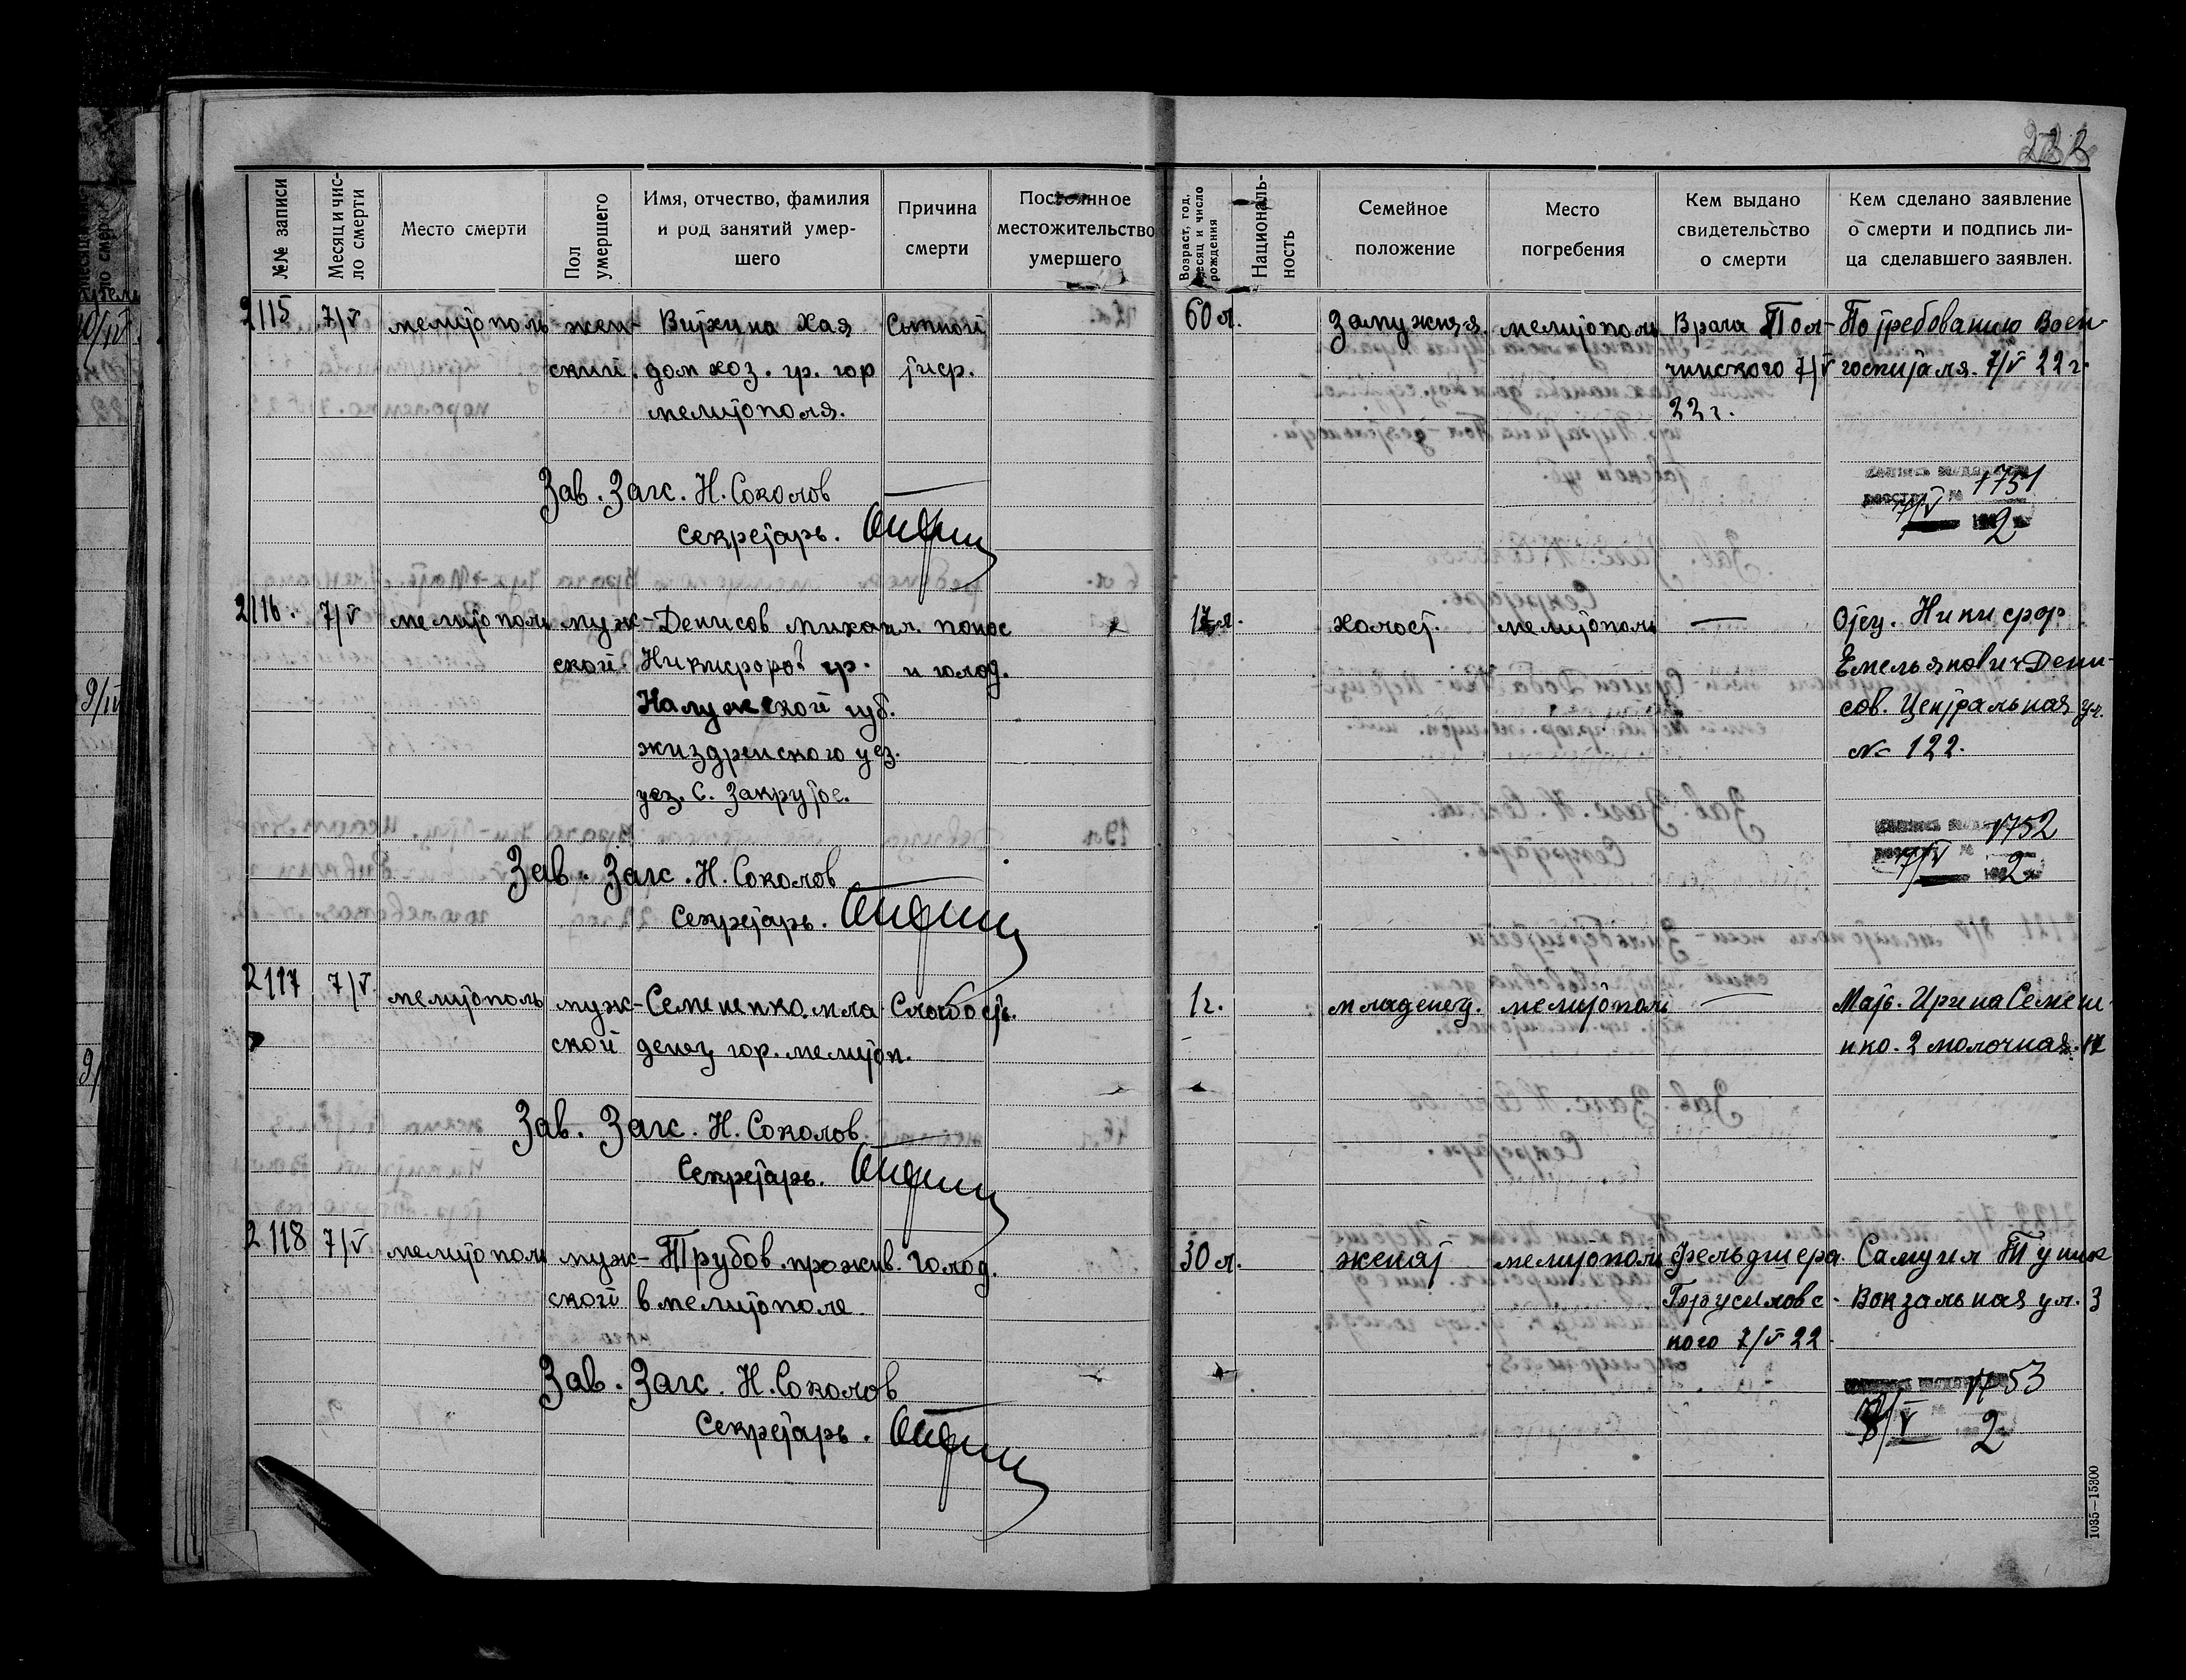 222
№№ записи
Месяц и чис-
ло смерти
Место смерти
Пол
умершего
Имя, отчество, фамилия
и род занятий умер-
шего
Причина
смерти
Постоянное
местожительство
умершего
Возраст, год,
месяц и число
рождения
Националь-
ность
Семейное
положение
Место
погребения
Кем выдано
свидетельство
о смерти
Кем сделано заявление
о смерти и подпись ли-
ца сделавшего заявлен.
2115 7/V мелитополь жен- Виткина Хая Сыпной 60 л. Замужняя. мелитополь Врача Пол- По требованию Воен-
ский. дом хоз. гр. гор тиф. чинского 7/V госпиталя. 7/V 22 г.
мелитополя. 22 г.
Зав. Загс. Н. Соколов
1751
7/V 2
Секретарь.
2116. 7/V мелитополь муж- Денисов михаил. понос 17 л. холост. мелитополь — Отец. Никифор
ской. Никифоров гр. и голод. Емельянович Дени-
Калужской губ. сов. Центральная ул.
жиздренского уез. № 122.
уез. С. Закрутое.
1752
7/V 2
Зав. Загс. Н. Соколов
Секретарь.
2117 7/V мелитополь муж- Семененко мла Слабость. 1 г. младенец. мелитополь — Мать. Ирина Семен-
ской денец гор. мелитоп. нко. 2 молочная.
Зав. Загс. Н. Соколов
Секретарь.
2118 7/V мелитополь муж- Трубов. прожив. Голод. 30 л. женат мелитополь Фельдшера Самуил
ской в мелитополе Вокзальная ул. 3
кого 7/V 22
Зав. Загс. Н. Соколов
1753
8/V 2
Секретарь.
1035—15300